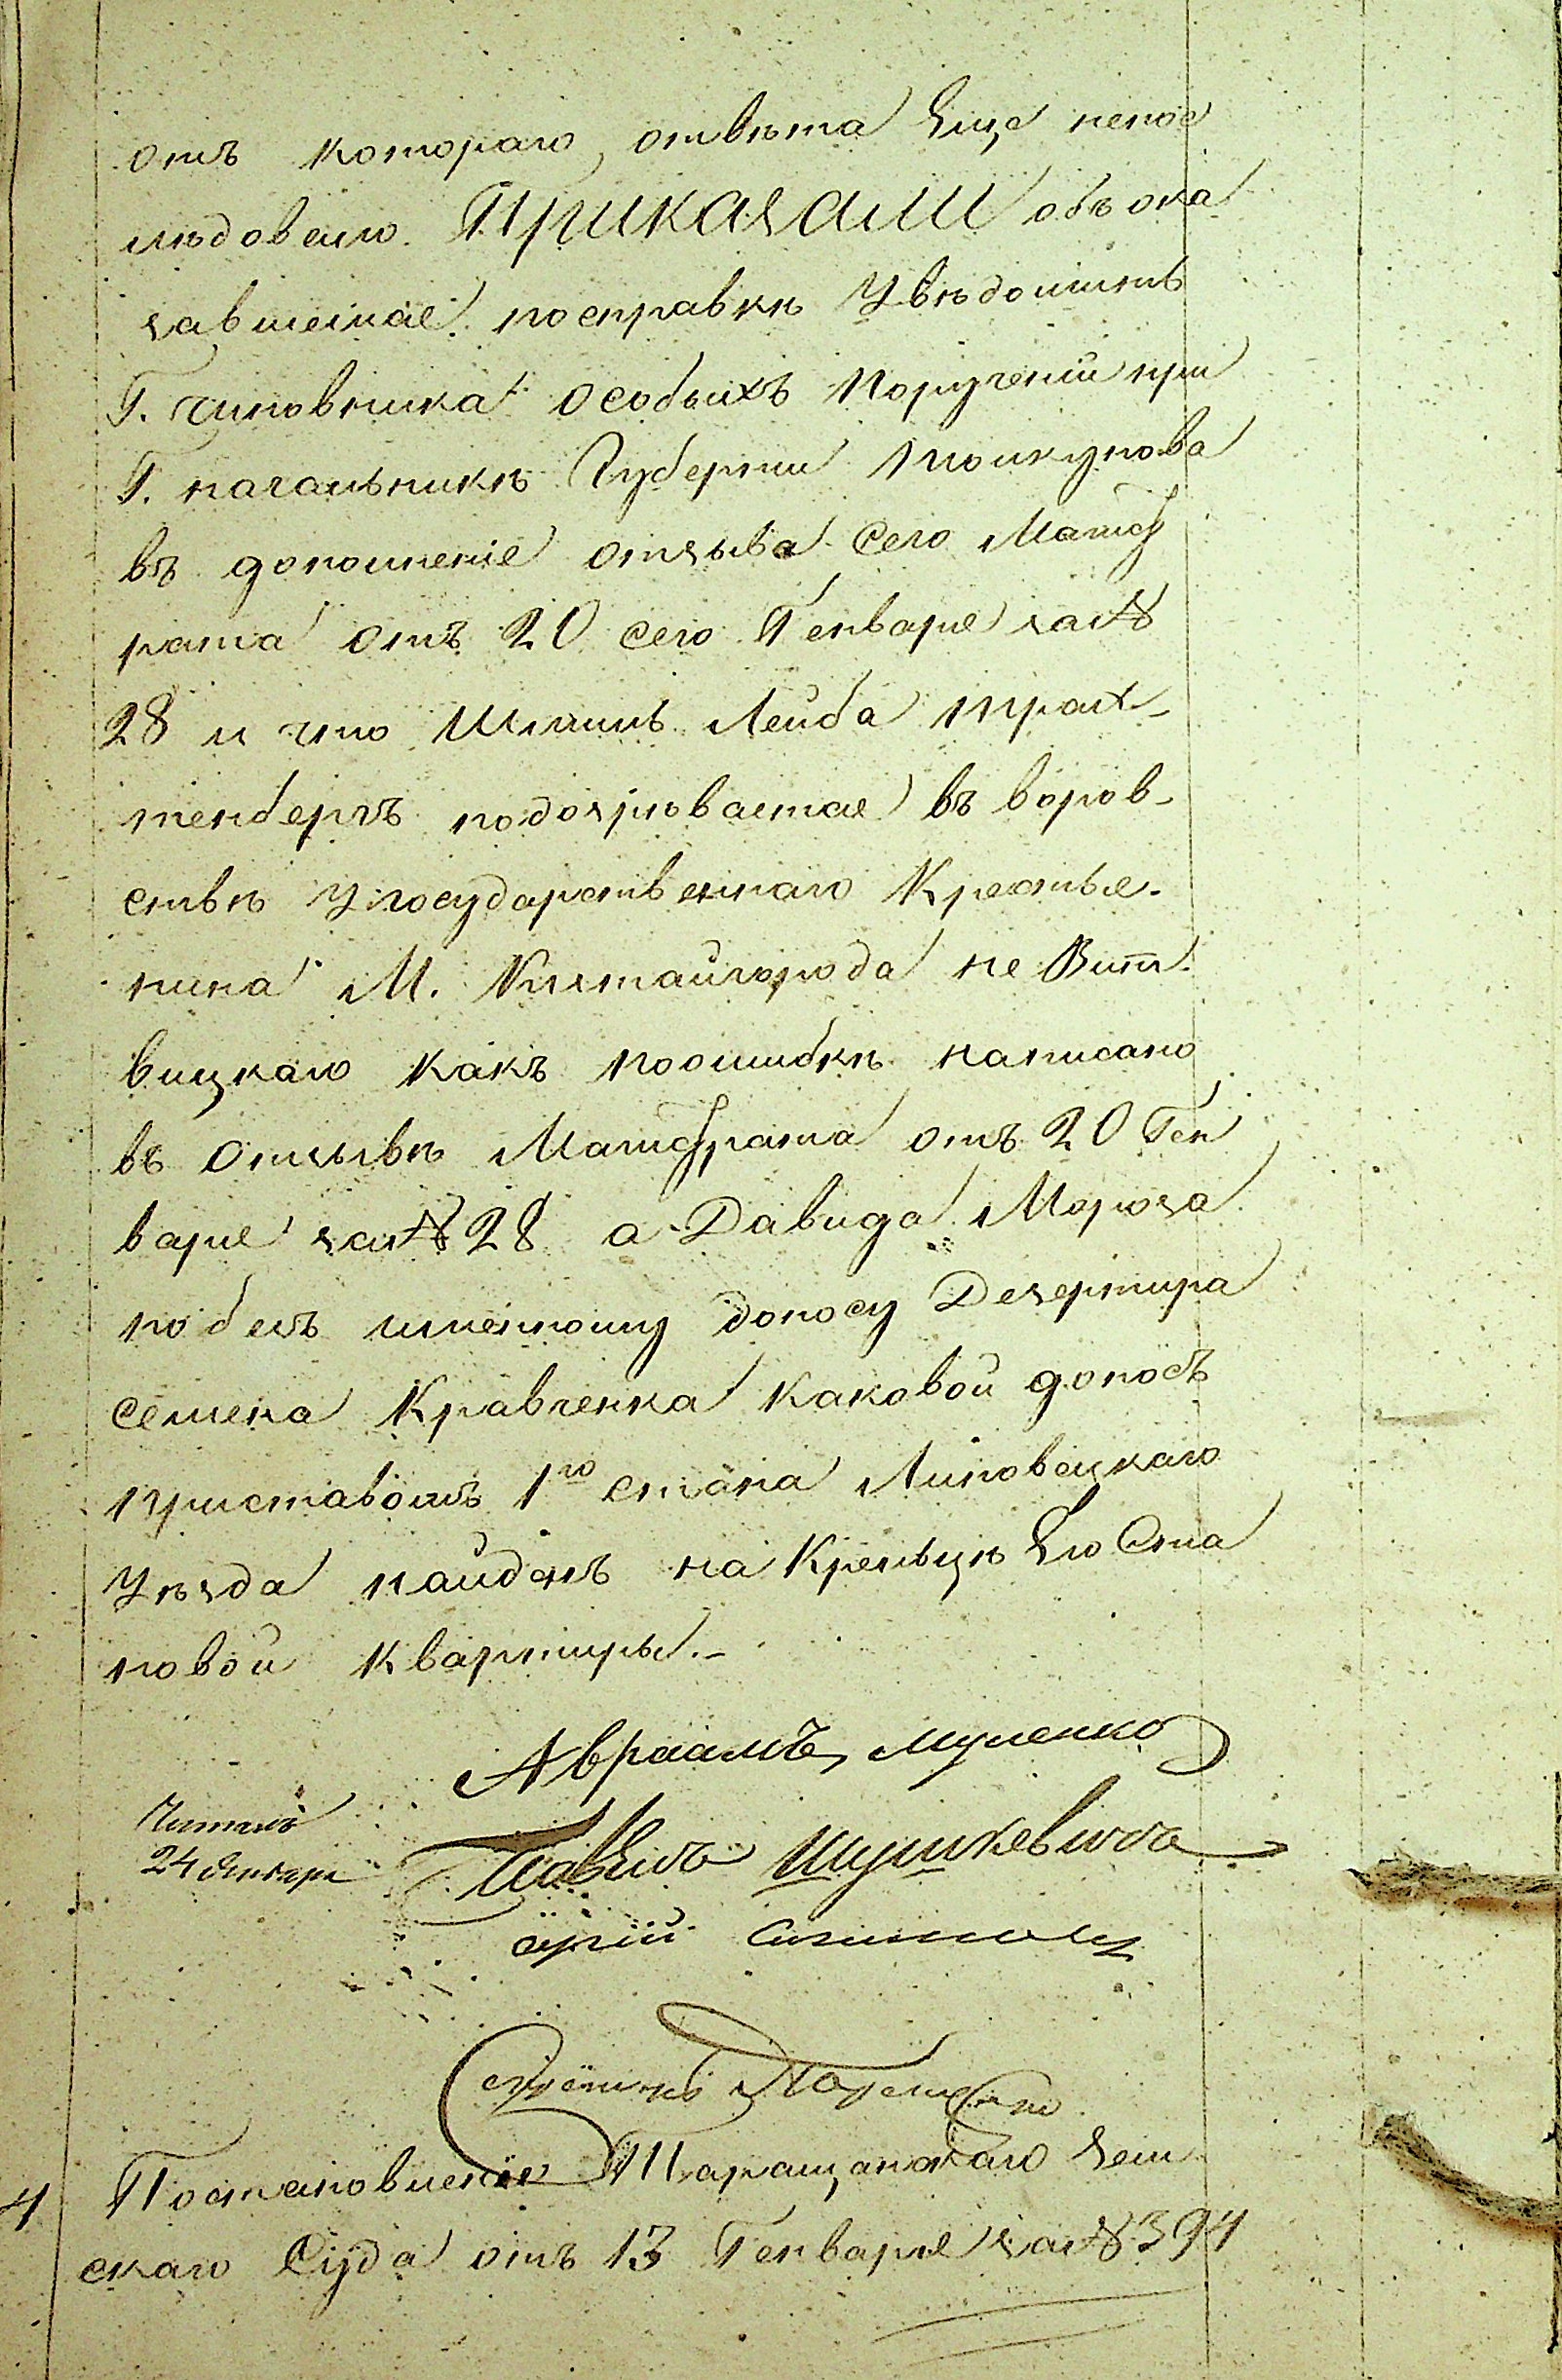 отъ котораго, отвѣта Еще непос
лѣдовало. Приказали объока
завшемся посправкѣ Увѣдомить
Г. чиновника особыхъ порученій при
Г. начальникѣ Губерніи
въ дополненіе отзыва сего Магист
рата отъ 20 сего Генваря за №
28 и что Шліомъ Лейба Трах-
тенбергъ подозрѣвается въ воров-
ствѣ Угосударственнаго Крестья-
нина М. Китайгорода не Вит
вицкаго какъ поошибкѣ написано
въ отзывѣ Магистрата отъ 20 Ген
варя за № 28 а Давида Мороза
по безъ именному доносу Дезертира
Семена Кравченка каковой доносъ
приставомъ 1го стана Липовецкаго
Уѣзда найденъ на Крыльцѣ Его Ста
новой квартиры.-
Авраамъ
Читалъ
24 Января
Павелъ Шушкевичъ
Секретарь
4 Постановленіе Таращанскаго Зем
скаго Суда отъ 13 Генваря за № 394